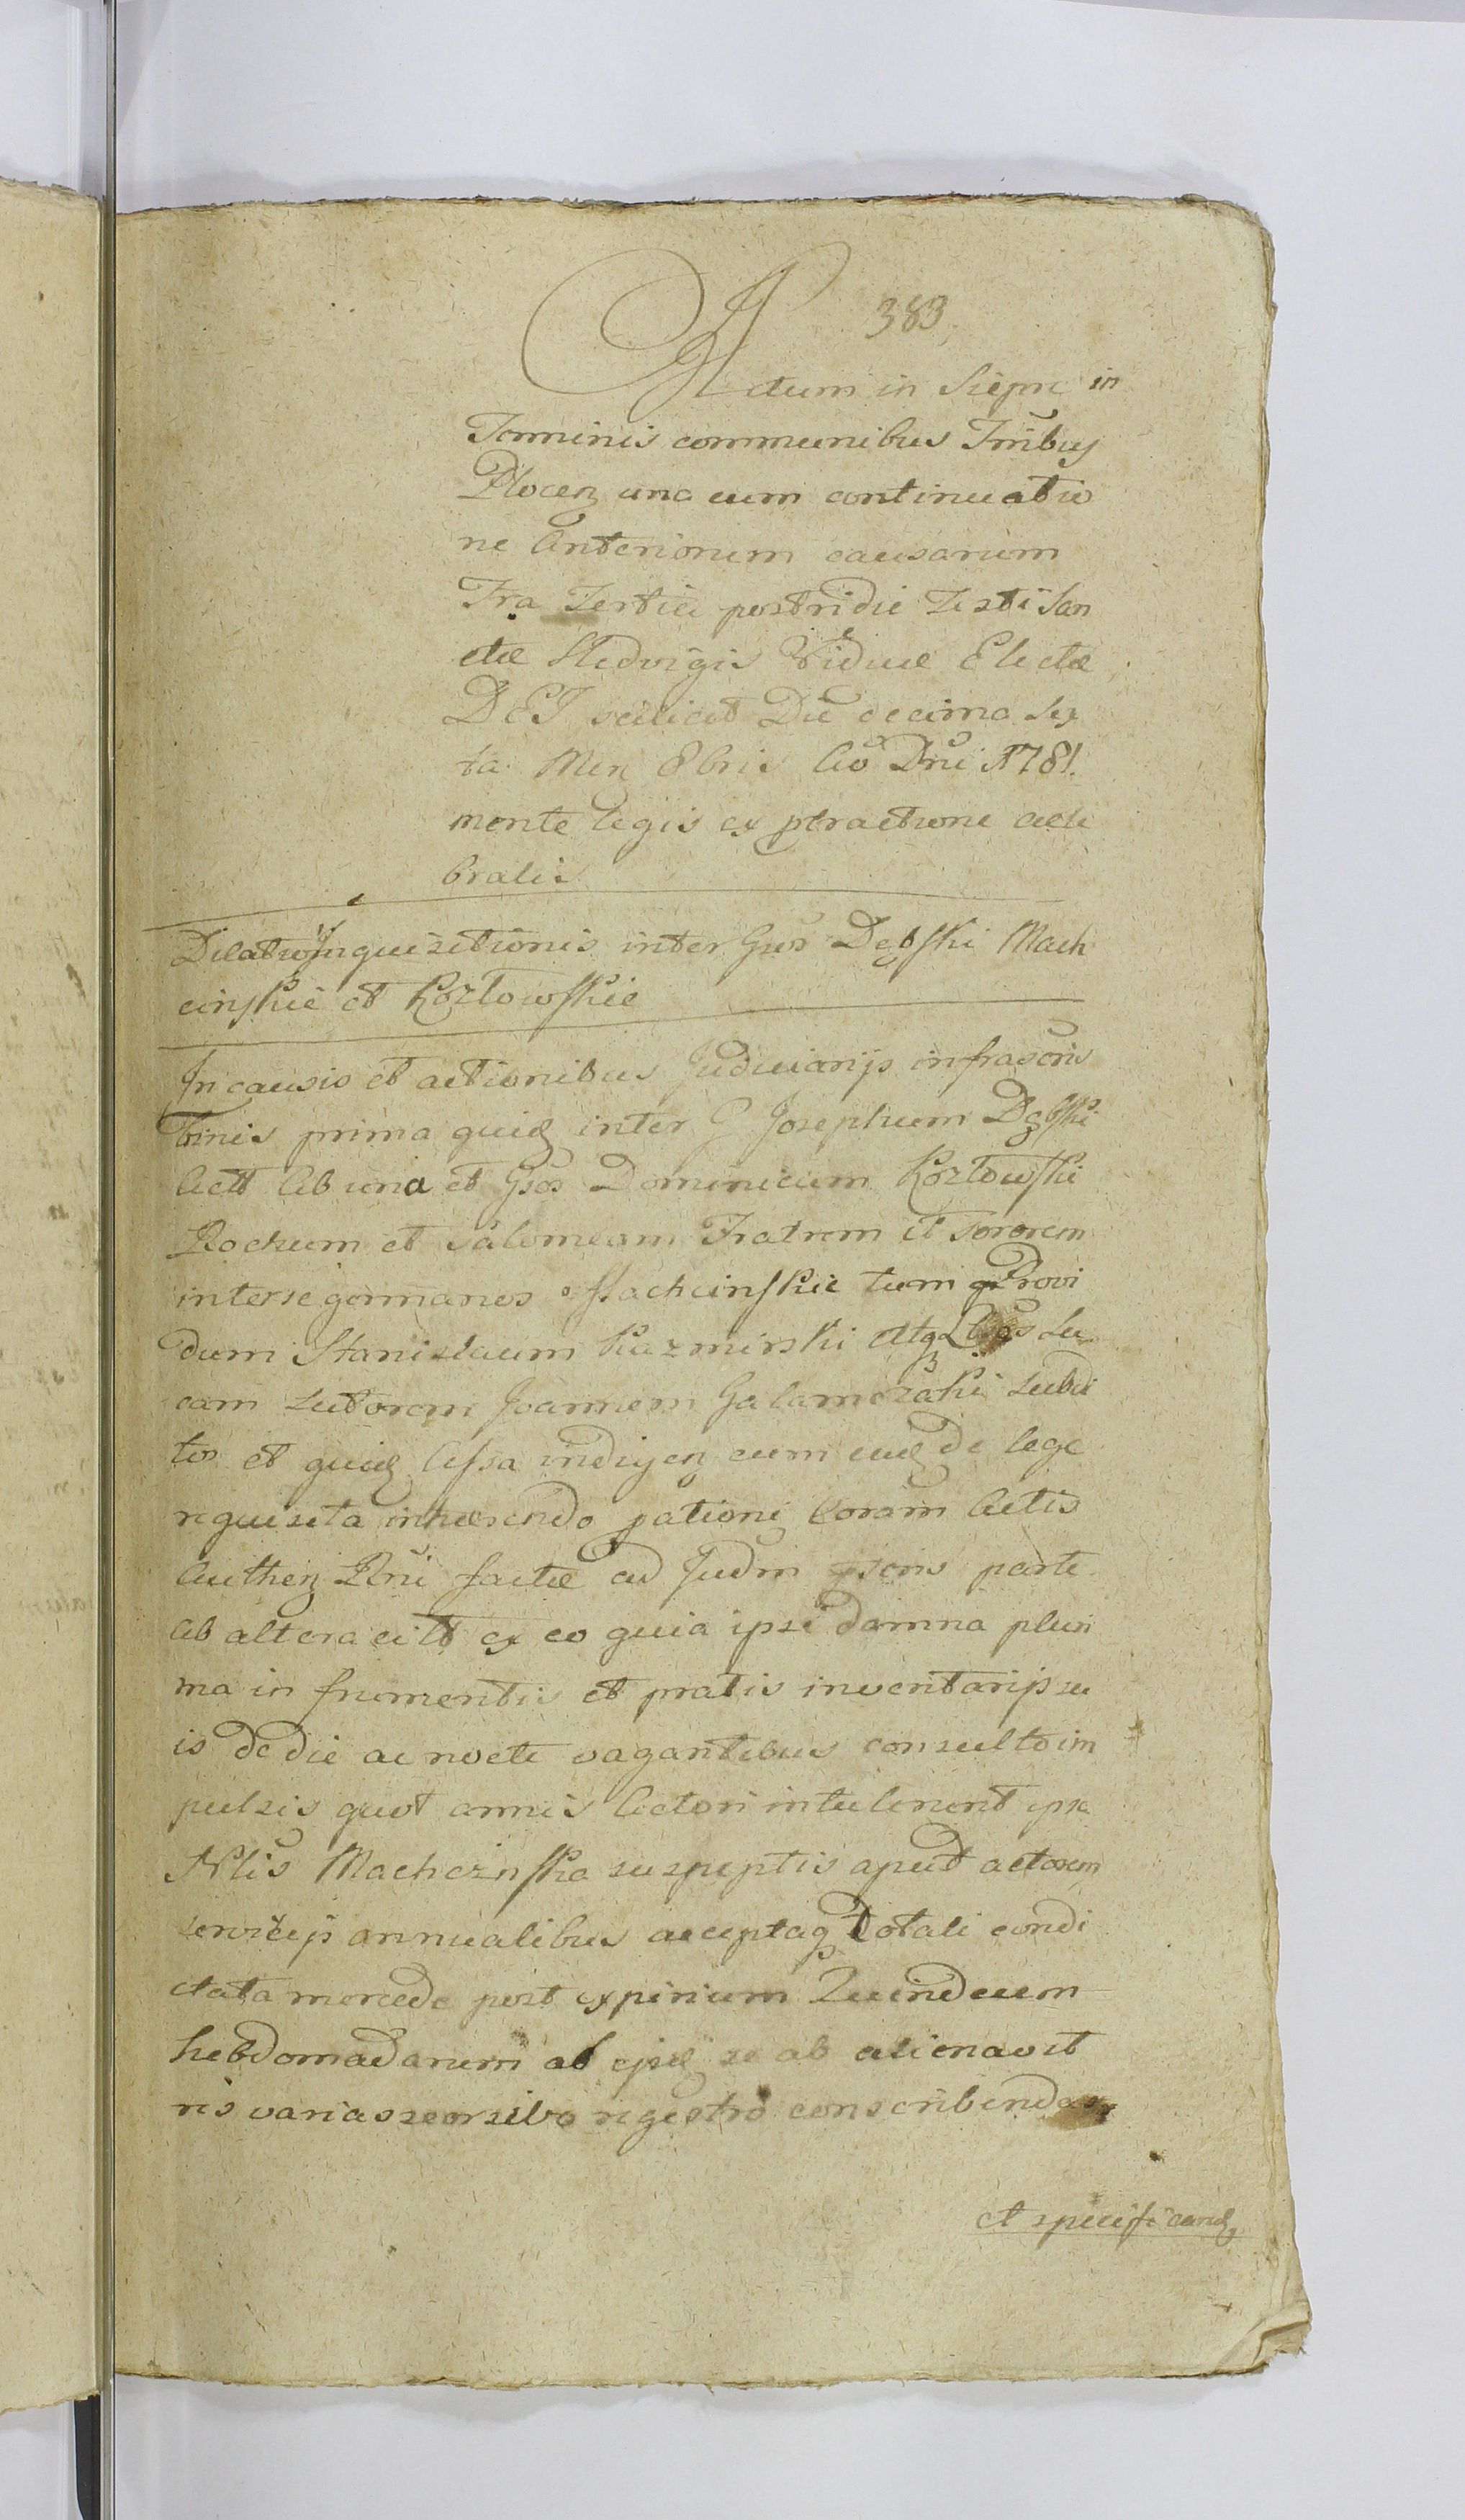 383
Actum in Siepre in
Terminis communibus Trribus
Plocen una cum continuatio
ne Anteriorum causarum
Fra Tertia postridie Festi San
ctæ Hedvigis Viduæ Electæ
DEI scilicet Die decima Sex
ta Men 8bris Ao Dni 1781.
mente legis ex ptractione cele
bratis
Dilatio Inquisitionis inter Gsos Dębski Mach
cinskie et Kozłowskie
In causis et actionibus Judiciarijs infrascris
binis prima quid inter G Josephum Dębski
Actt Ab una et Gsos Dominicum Kozłowski
Rochum et Salomeam Fratrem et Sororem
interse germanos Machcinskie tum Provi
dum Stanislaum Kazmirski Atq Lbos Lu
cam sutorem Joannem Galamczaki subdi
tos et quid Assa indigen cum eud de lege
requisita inhærendo pationi Coram Actis
Authen Rni factæ ad Judm psens parte
Ab altera citt ex eo quia ipsi damna pluri
ma in frumentis et pratis inventarijs su
is de die ac nocte vagantibus consulto im
pulsis quot annis Actori intulerunt ipsa
Nlis Machczinska susceptis apud actorem
servicijs annualibus acceptaq totali condi
ctata mercede post expirium Quindecim
hebdomadarum ab ejsd se ab alienavit
res varias seorsivo regestro conscribendas
et specificand